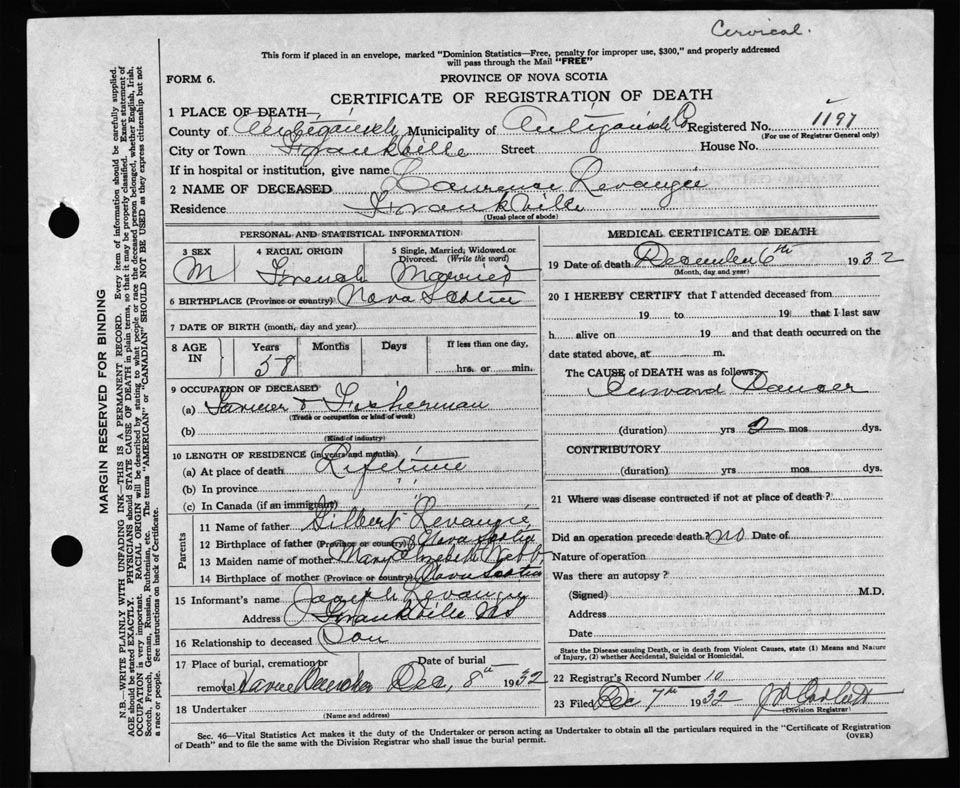 Cervical.
This form if placed in an envelope, marked "Dominion Statistics—Free, penalty for improper use, $300," and properly addressed
will pass through the Mail "FREE"
FORM 6.
PROVINCE OF NOVA SCOTIA
CERTIFICATE OF REGISTRATION OF DEATH
1 PLACE OF DEATH
County of Antigonish Municipality of Antigonish Co Registered No. 1197
(For use of Registrar General only)
City or Town Frankville Street House No.
If in hospital or institution, give name
2 NAME OF DECEASED Laurence Levangie
Residence Frankville
(Usual place of abode)
PERSONAL AND STATISTICAL INFORMATION
3 SEX 4 RACIAL ORIGIN 5 Single, Married, Widowed or
Divorced. (Write the word)
M French Married
6 BIRTHPLACE (Province or country) Nova Scotia
7 DATE OF BIRTH (month, day and year)
8 AGE IN Years Months Days If less than one day,
58 hrs. or min.
9 OCCUPATION OF DECEASED
(a) Farmer & Fisherman
(Trade or occupation or kind of work)
(b)
(Kind of industry)
10 LENGTH OF RESIDENCE (in years and months)
(a) At place of death Lifetime
(b) In province " "
(c) In Canada (if an immigrant)
Parents
11 Name of father Gilbert Levangie
12 Birthplace of father (Province or country) Nova Scotia
13 Maiden name of mother Mary Webb
14 Birthplace of mother (Province or country) Nova Scotia
15 Informant's name Joseph Levangie
Address Frankville NS
16 Relationship to deceased Son
17 Place of burial, cremation or Date of burial
removal Havre Boucher Dec, 8th 1932
18 Undertaker
(Name and address)
MEDICAL CERTIFICATE OF DEATH
19 Date of death December 6th 1932
(Month, day and year)
20 I HEREBY CERTIFY that I attended deceased from
19 to 19 that I last saw
h alive on 19 and that death occurred on the
date stated above, at m.
The CAUSE of DEATH was as follows:
Inward Cancer
(duration) yrs 2 mos dys.
CONTRIBUTORY
(duration) yrs mos dys.
21 Where was disease contracted if not at place of death?
Did an operation precede death? no Date of
Nature of operation
Was there an autopsy?
(Signed) M.D.
Address
Date
State the Disease causing Death, or in death from Violent Causes, state (1) Means and Nature
of Injury, (2) whether Accidental, Suicidal or Homicidal.
22 Registrar's Record Number 10
23 Filed Dec 7th 1932
(Division Registrar)
Sec. 46—Vital Statistics Act makes it the duty of the Undertaker or person acting as Undertaker to obtain all the particulars required in the "Certificate of Registration
of Death" and to file the same with the Division Registrar who shall issue the burial permit.
(OVER)
MARGIN RESERVED FOR BINDING
N.B.—WRITE PLAINLY WITH UNFADING INK—THIS IS A PERMANENT RECORD. Every item of information should be carefully supplied.
AGE should be stated EXACTLY. PHYSICIANS should STATE CAUSE OF DEATH in plain terms, so that it may be properly classified. Exact statement of
OCCUPATION is very important. RACIAL ORIGIN will be described by stating to what people or race the deceased person belonged, whether English, Irish,
Scotch, French, German, Russian, Ruthenian, etc. The terms "AMERICAN" or "CANADIAN" SHOULD NOT BE USED as they express citizenship but not
a race or people. See instructions on back of Certificate.